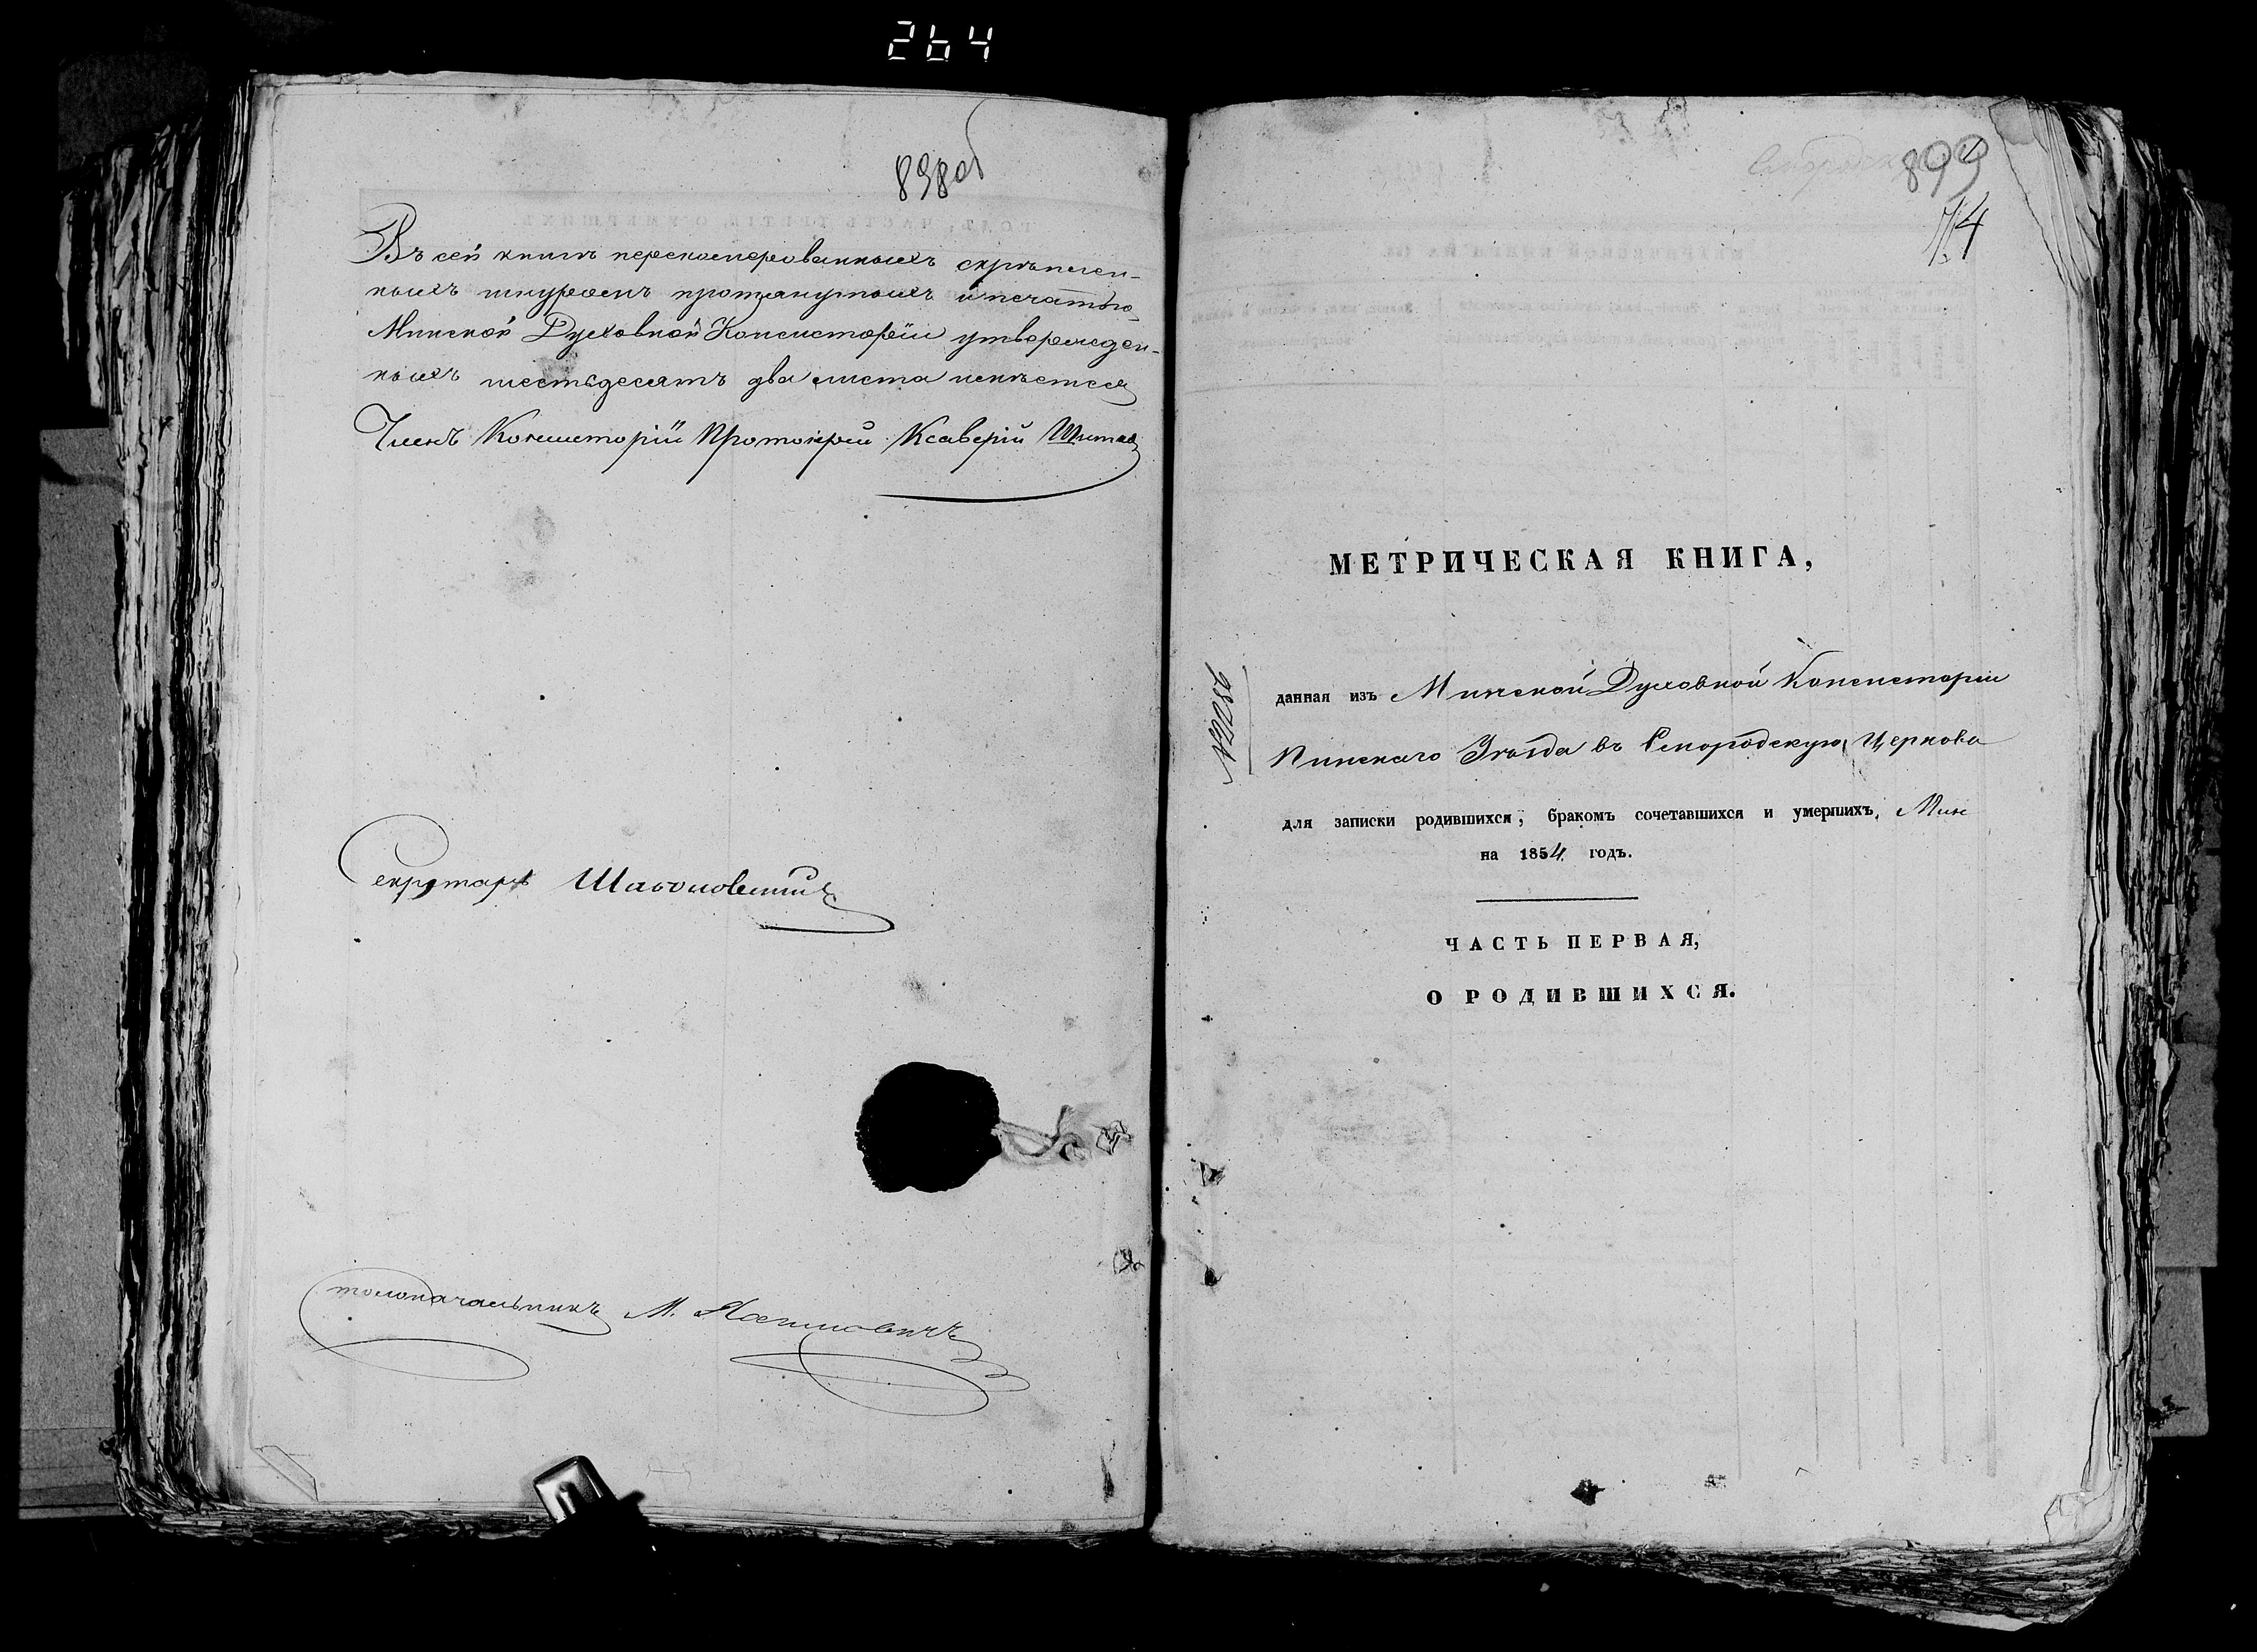 264
898об
Въ сей книгѣ перенумерованныхъ скрѣплен-
ныхъ шнуромъ протянутыхъ и печатью
Минской Духовной Консисторіи утвержден-
ныхъ шестьдесятъ два листа имѣется
Членъ Консисторіи Протоіерей Ксаверій
Секретарь
Столоначальникъ М.
899
114
МЕТРИЧЕСКАЯ КНИГА,
данная изъ Минской Духовной Консисторіи
Пинскаго Уѣзда въ Смородскую Церковь
для записки родившихся, бракомъ сочетавшихся и умершихъ, Мин
на 1854 годъ.
ЧАСТЬ ПЕРВАЯ,
О РОДИВШИХСЯ.